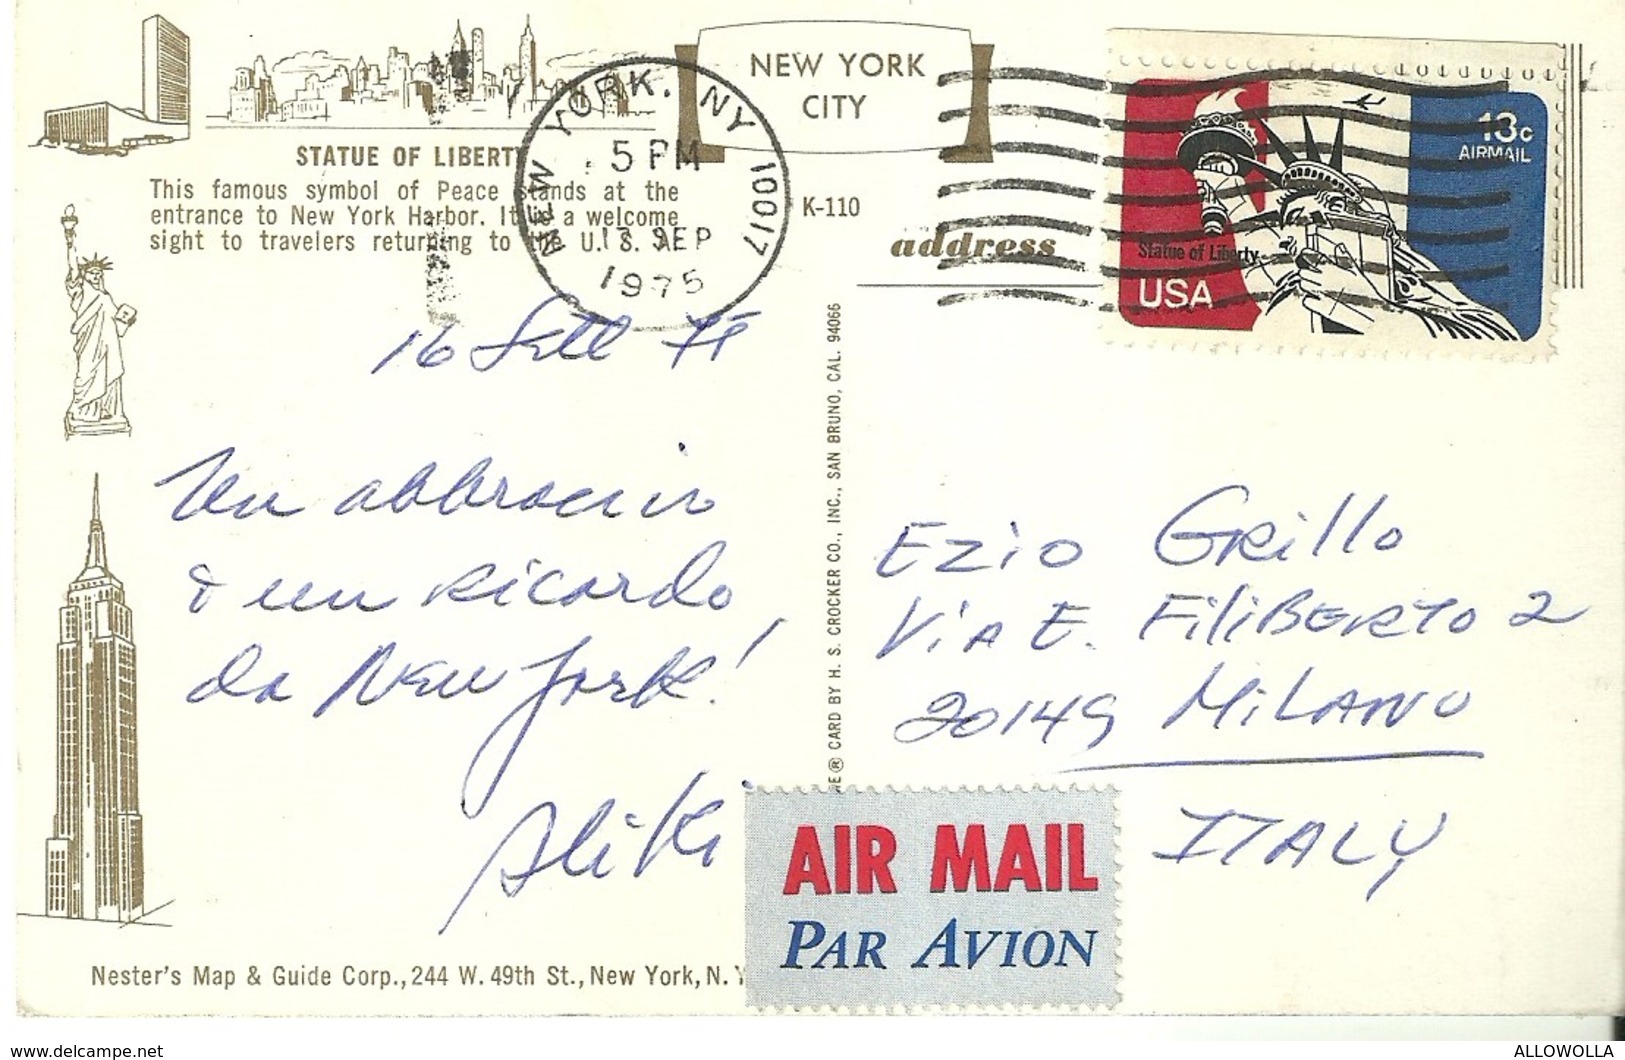 NEW YORK
CITY
STATUE OF LIBERTY
This famous symbol of Peace stands at the
entrance to New York Harbor. It is a welcome
sight to travelers returning to the U.S.A.
NEW YORK, NY 10017
5 PM
17 SEP
1975
K-110
address
13c
AIRMAIL
Statue of Liberty
USA
16 Sett 75
Un abbraccio
& un ricordo
da New York!
Aliki
® CARD BY H. S. CROCKER CO., INC., SAN BRUNO, CAL. 94066
Ezio Grillo
Via E. Filiberto 2
20149 Milano
ITALY
AIR MAIL
PAR AVION
Nester's Map & Guide Corp., 244 W. 49th St., New York, N. Y
www.delcampe.net
ALLOWOLLA